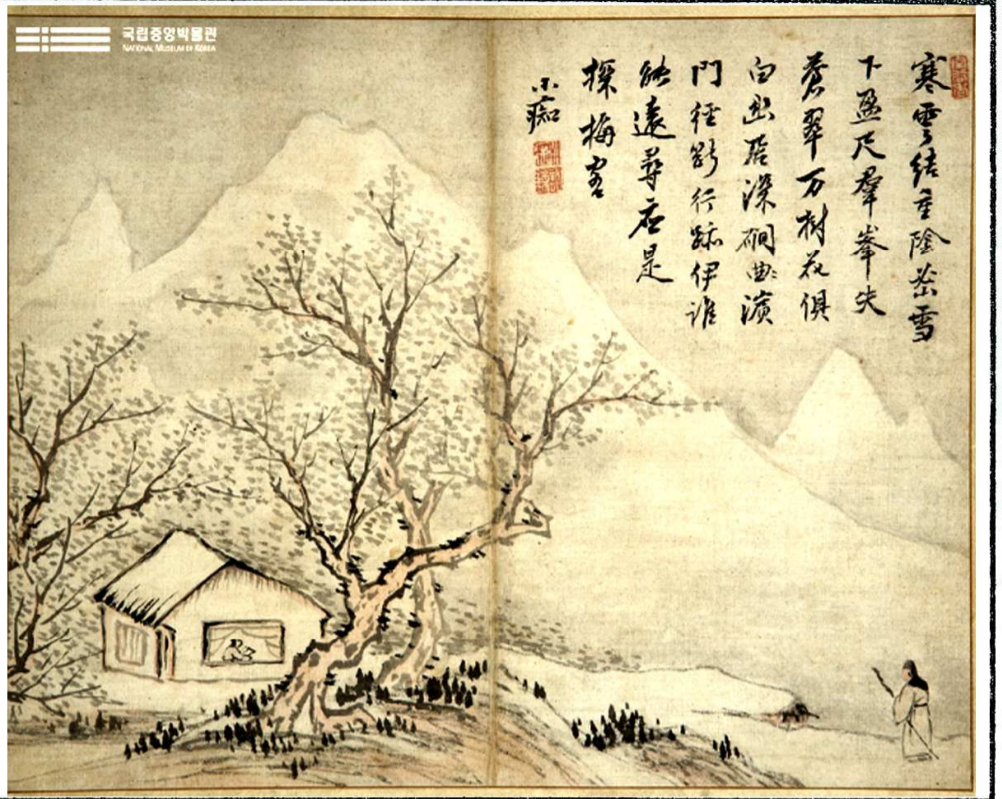 국립중앙박물관
NATIONAL MUSEUM OF KOREA
寒雲結重陰密雪
下盈尺羣峯失
蒼翠万樹花俱
白幽居深磵曲濱
門徑斷行跡伊誰
能遠尋應是
探梅客
小痴